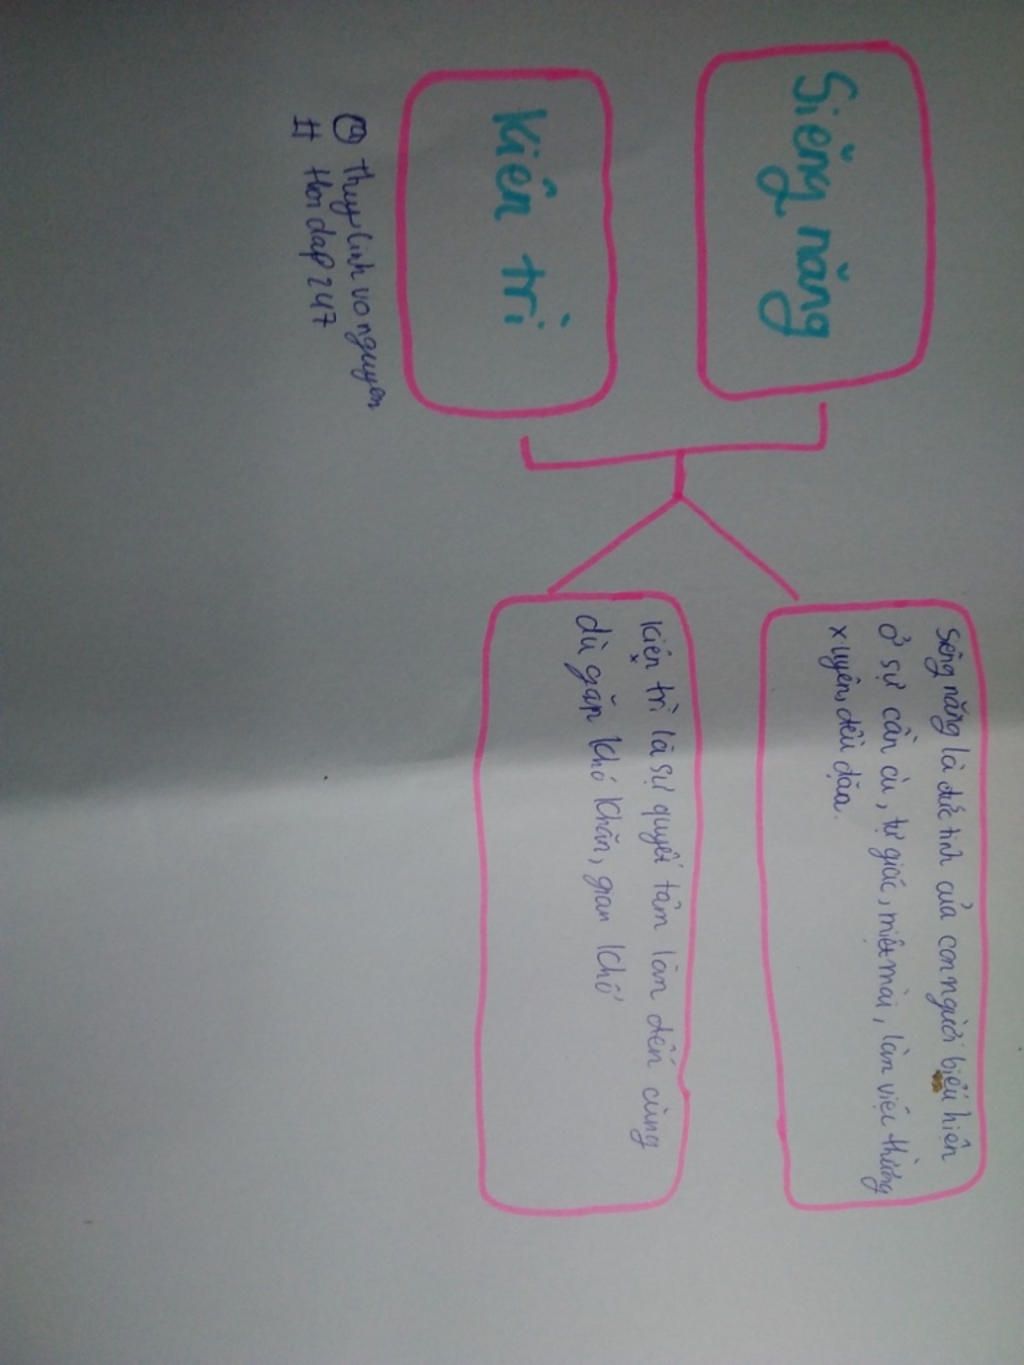 Siêng năng
Kiên trì
thuylinhvonguyen
# Hoidap247
Siêng năng là đức tính của con người biểu hiện
ở sự cần cù, tự giác, miệt mài, làm việc thường
xuyên, đều đặn.
Kiên trì là sự quyết tâm làm đến cùng
dù gặp khó khăn, gian khổ